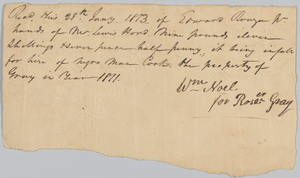 Recd. this 28th Jany. 1813. of Edward
hands of Mr. Lewis Ford Nine pounds eleven
Shillings & seven pence half penny, it being in full
for hire of negro man Cook. the property of
Gray in Year 1811.
Wm Noel
for Gray